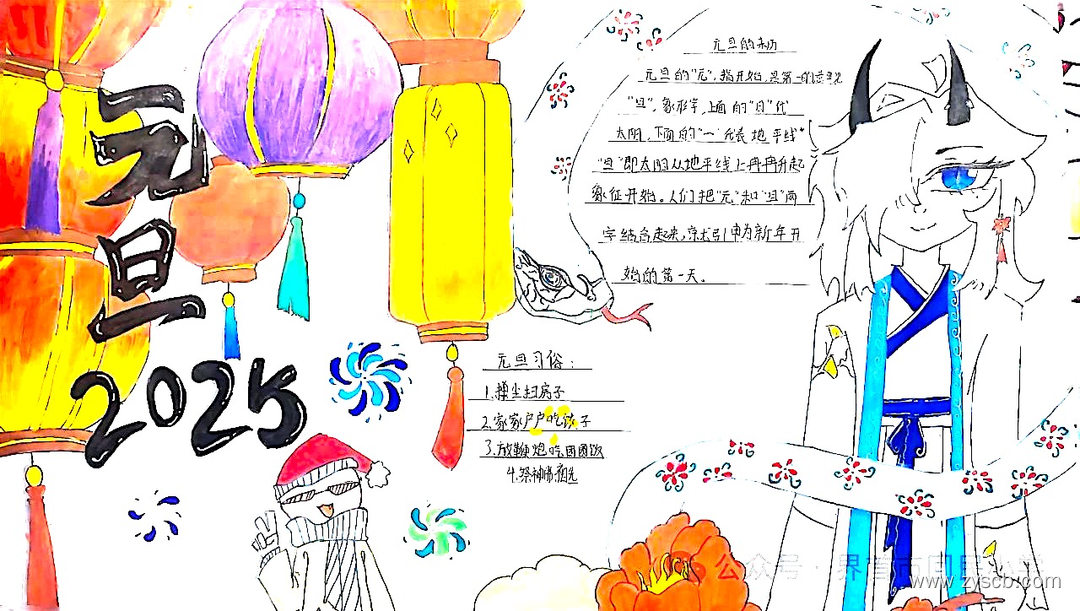 元旦
2025
元旦的来历
元旦的"元",指开始,是第一的意思
"旦",象形字,上面的"日"代
太阳,下面的"一"代表地平线"
"旦"即太阳从地平线上冉冉升起
象征开始。人们把"元"和"旦"两
字结合起来,就引申为新年开
始的第一天。
元旦习俗:
1.掸尘扫房子
2.家家户户吃饺子
3.放鞭炮吃团圆饭
4.祭神 祖先
公众号·界首市
www.zyscb.com